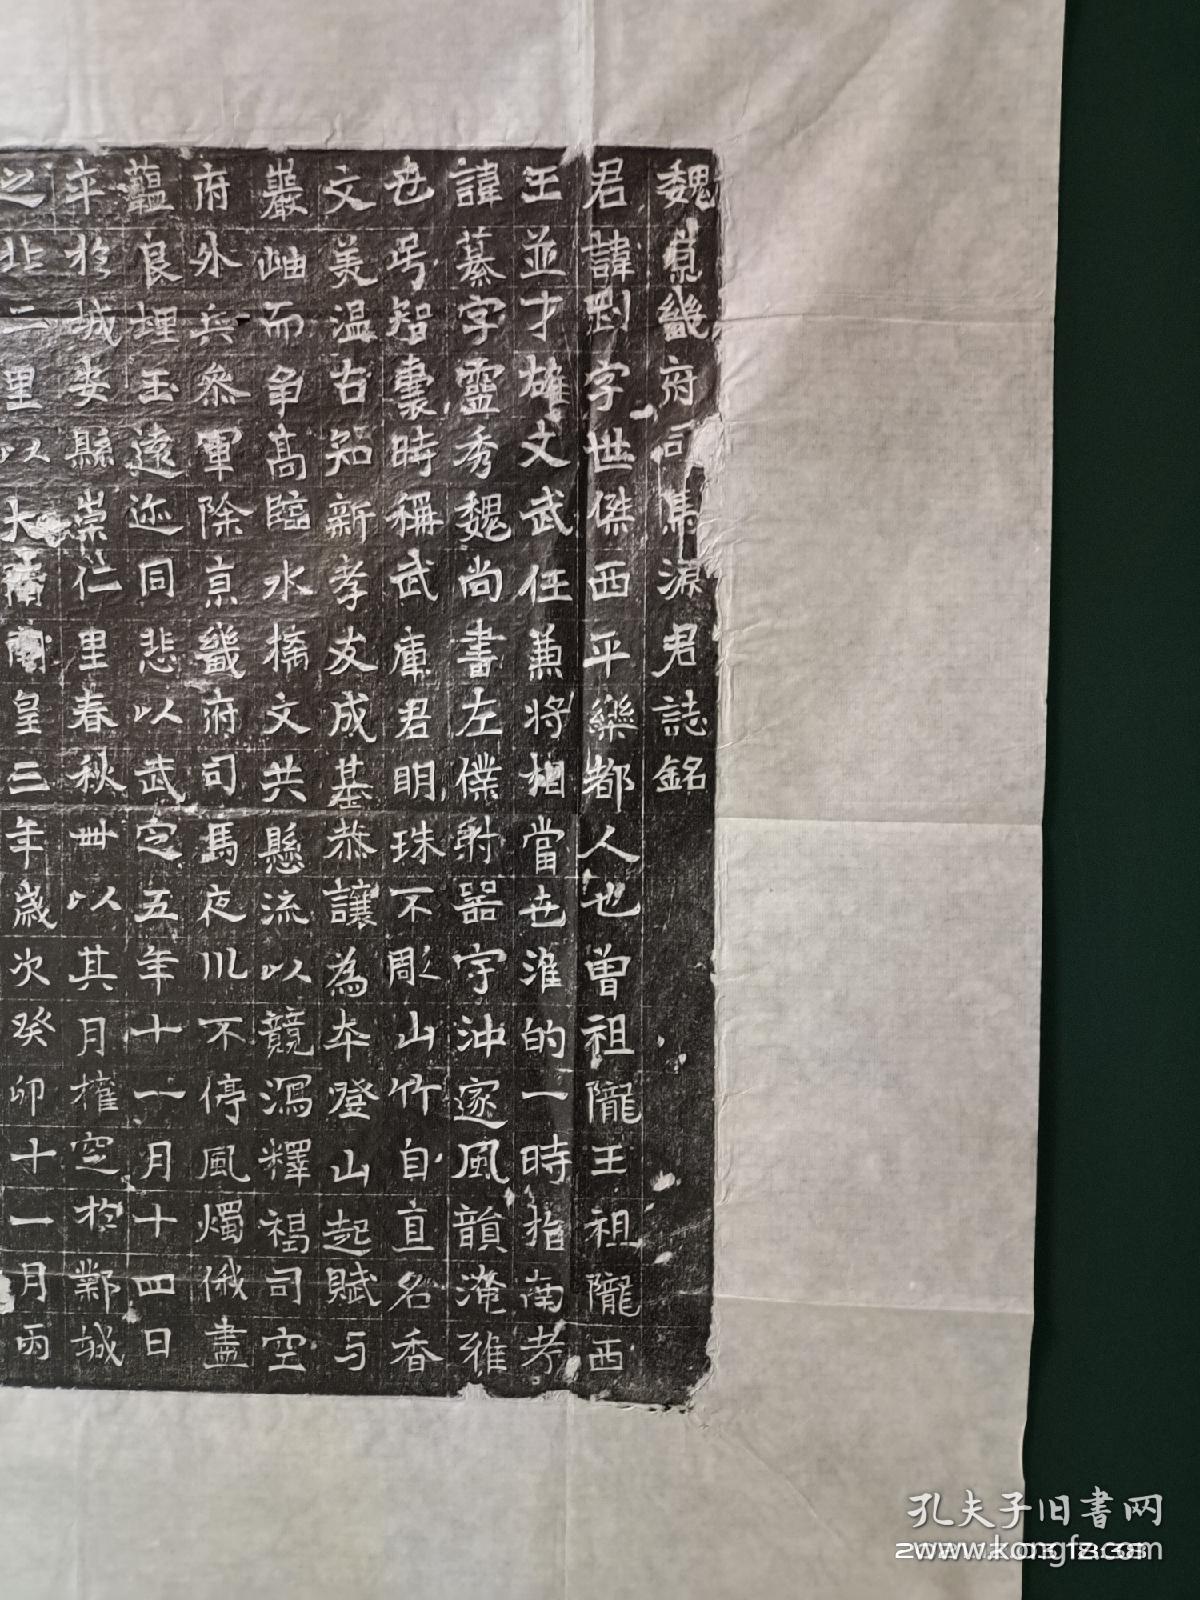 魏京畿府司馬源君誌銘
君諱剽字世傑西平樂都人也曾祖隴王祖隴西
王並才雄文武任兼將相當世准的一時指南考
諱纂字靈秀魏尚書左僕射器宇沖邃風韻淹雅
世号智囊時稱武庫君明珠不彫山竹自直名香
文美温古知新孝友成基恭讓為本登山起賦与
巖岫而争高臨水摛文共懸流以競瀉釋褐司空
府外兵參軍除京畿府司馬夜川不停風燭俄盡
蘊良埋玉遠迩同悲以武定五年十一月十四日
卒於城安縣崇仁里春秋卅以其月權窆於鄴城
之北二里以大隋開皇三年歲次癸卯十一月丙
孔夫子旧书网
www.kongfz.com